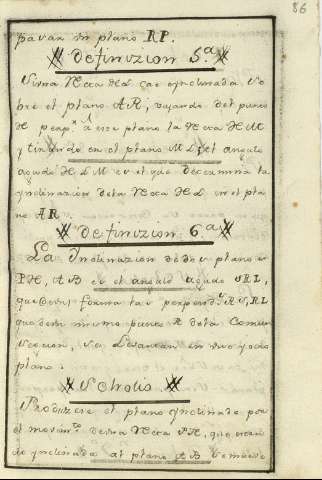 86
pavan un plano RP.
Definizion 5.a
Si una Recta HL cae ynclinada so
bre el plano AR, vajando del punto
H perp.r à este plano la Recta HM
y tirando en el plano ML; el angulo
agudo HLM es el que determina la
ynclinazion de la Recta HL en el pla
no AR.
Definizion 6.a
La Inclinazion de dos planos
PH, AB es el angulo agudo SRL,
que forman las perpend.s RS, RL
que de un mismo punto R de la Comun
Seccion, se Levantan en sus
planos.
Scholio
Produzese el plano ynclinado por
el movim.to de una Recta PR, que estan
do ynclinada al plano AB